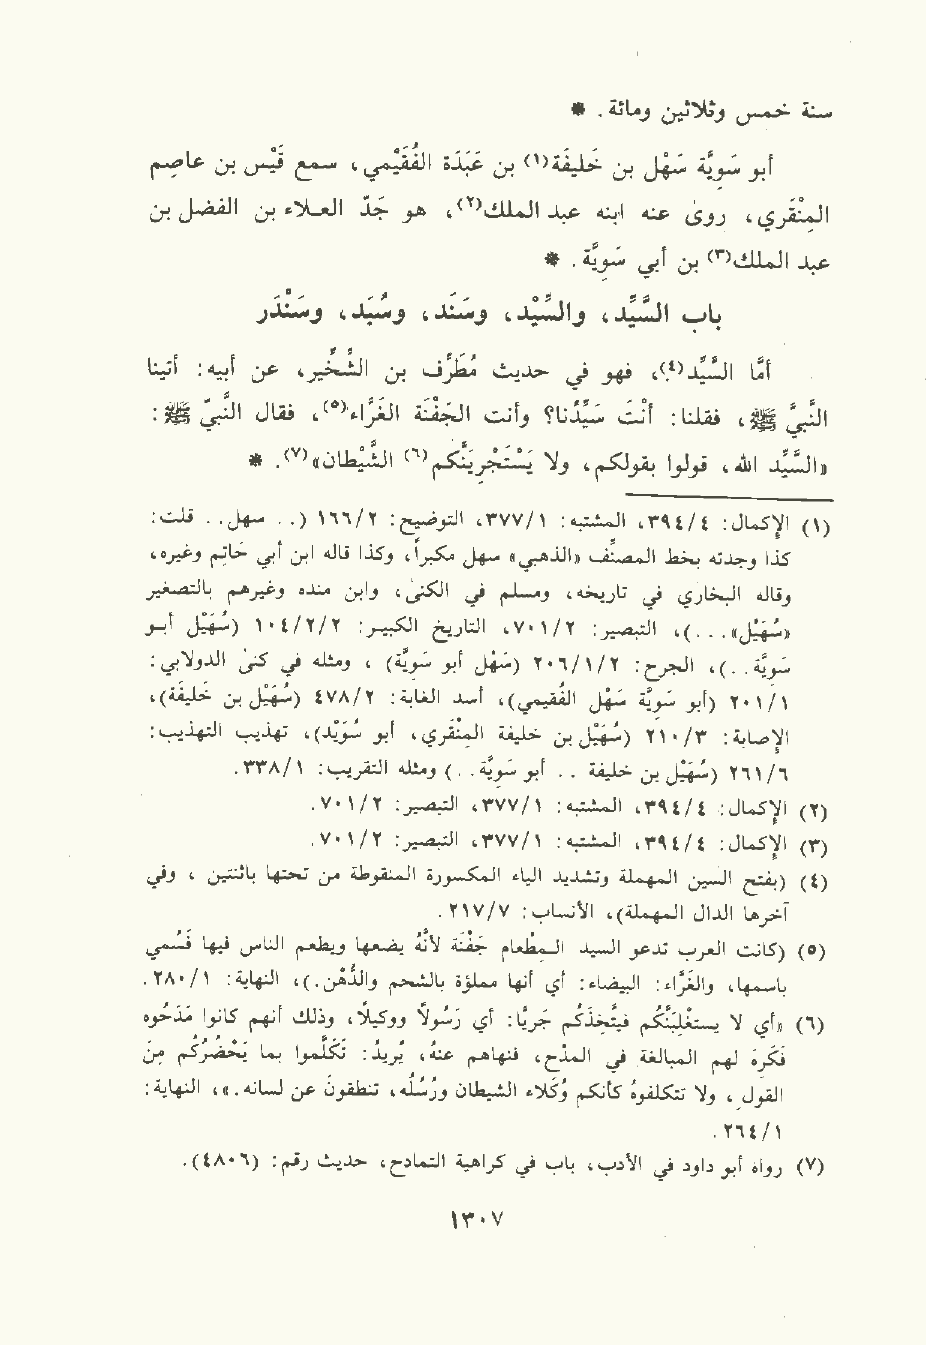 سنة خمس وثلاثين ومائة. *
أبو سَوِيَّة سَهْل بن خَليفَة(١) بن عَبَدَة الفُقَيْمي، سمع قَيْس بن عاصِم
المِنْقَري، روى عنه ابنه عبد الملك(٢)، هو جَدّ العلاء بن الفضل بن
عبد الملك(٣) بن أبي سَوِيَّة. *
باب السَّيِّد، والسِّيْد، وسَنَد، وسُبَد، وسَنْدَر
أمَّا السَّيِّد(٤)، فهو في حديث مُطَرِّف بن الشِّخِّير، عن أبيه: أتينا
النَّبيَّ ﷺ، فقلنا: أنْتَ سَيِّدُنا؟ وأنت الجَفْنَة الغَرَّاء(٥)، فقال النَّبيّ ﷺ:
«السَّيِّد الله، قولوا بقولكم، ولا يَسْتَجْرِيَنَّكم(٦) الشَّيْطان»(٧). *
(١) الإكمال: ٣٩٤/٤، المشتبه: ٣٧٧/١، التوضيح: ١٦٦/٢ (.. سهل.. قلت:
كذا وجدته بخط المصنِّف «الذهبي» سهل مكبراً، وكذا قاله ابن أبي خَاتِم وغيره،
وقاله البخاري في تاريخه، ومسلم في الكنى، وابن منده وغيرهم بالتصغير
«سُهَيْل»...)، التبصير: ٧٠١/٢، التاريخ الكبير: ١٠٤/٢/٢ (سُهَيْل أبو
سَوِيَّة..)، الجرح: ٢٠٦/١/٢ (سَهْل أبو سَوِيَّة) ، ومثله في كنى الدولابي:
٢٠١/١ (أبو سَوِيَّة سَهْل الفُقيمي)، أسد الغابة: ٤٧٨/٢ (سُهَيْل بن خَليفَة)،
الإصابة: ٢١٠/٣ (سُهَيْل بن خليفة المِنْقري، أبو سُوَيْد)، تهذيب التهذيب:
٢٦١/٦ (سُهَيْل بن خليفة .. أبو سَوِيَّة..) ومثله التقريب: ٣٣٨/١.
(٢) الإكمال: ٣٩٤/٤، المشتبه: ٣٧٧/١، التبصير: ٧٠١/٢.
(٣) الإكمال: ٣٩٤/٤، المشتبه: ٣٧٧/١، التبصير: ٧٠١/٢.
(٤) (بفتح السين المهملة وتشديد الياء المكسورة المنقوطة من تحتها باثنتين ، وفي
آخرها الدال المهملة)، الأنساب: ٢١٧/٧.
(٥) (كانت العرب تدعو السيد المِطْعام جَفْنَة لأنَّهُ يضعها ويطعم الناس فيها فَسُمي
باسمها، والغَرَّاء: البيضاء: أي أنها مملؤة بالشحم والدُّهْن.)، النهاية: ٢٨٠/١.
(٦) «أي لا يستَغْلِبَنَّكُم فيتَّخِذَكُم جَرِيًّا: أي رَسُولًا ووكيلًا، وذلك أنهم كانوا مَدَحُوه
فَكَرِهَ لهم المبالغة في المدح، فنهاهم عنهُ، يُرِيدُ: تَكَلَّموا بما يَحْضُرُكم مِنَ
القول، ولا تتكلفوهُ كأنكم وُكَلاء الشيطان ورُسُلُه، تنطقونَ عن لسانه.»، النهاية:
٢٦٤/١.
(٧) رواه أبو داود في الأدب، باب في كراهية التمادح، حديث رقم: (٤٨٠٦).
١٣٠٧